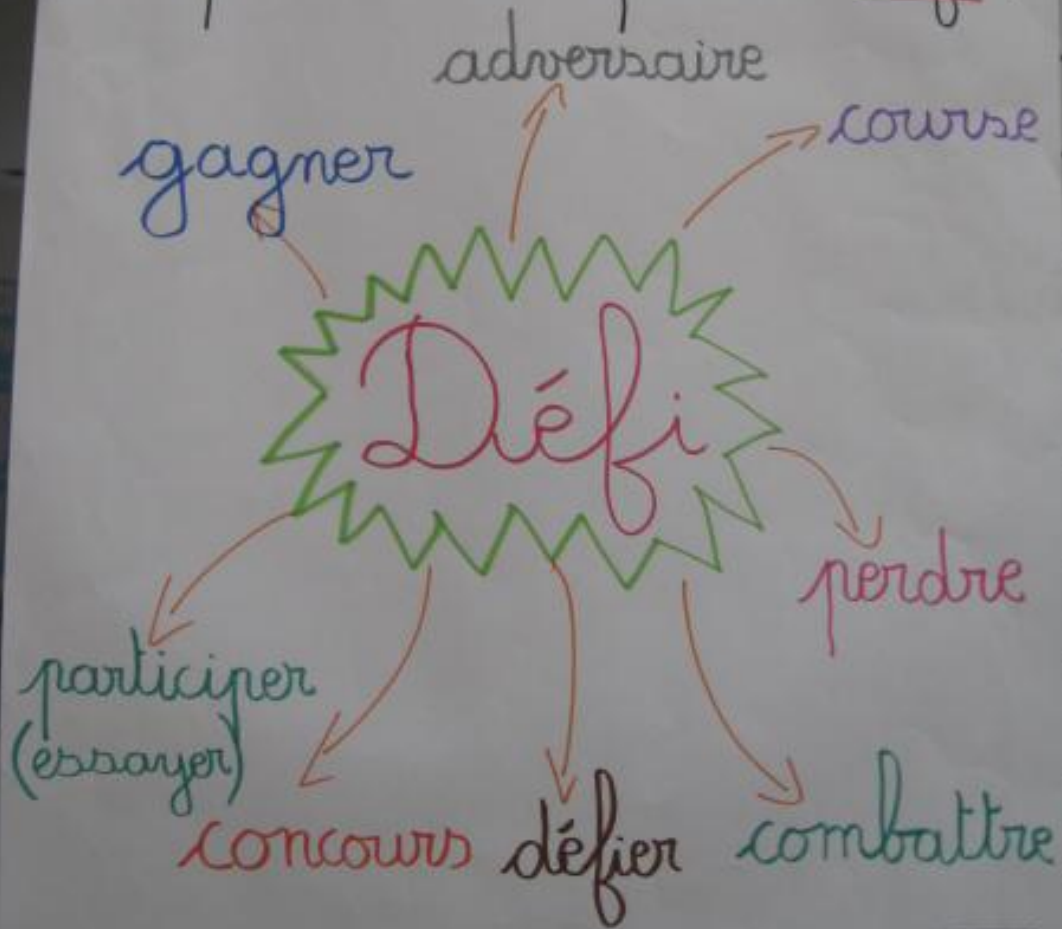 adversaire
course
gagner
Défi
perdre
participer
(essayer)
concours défier combattre